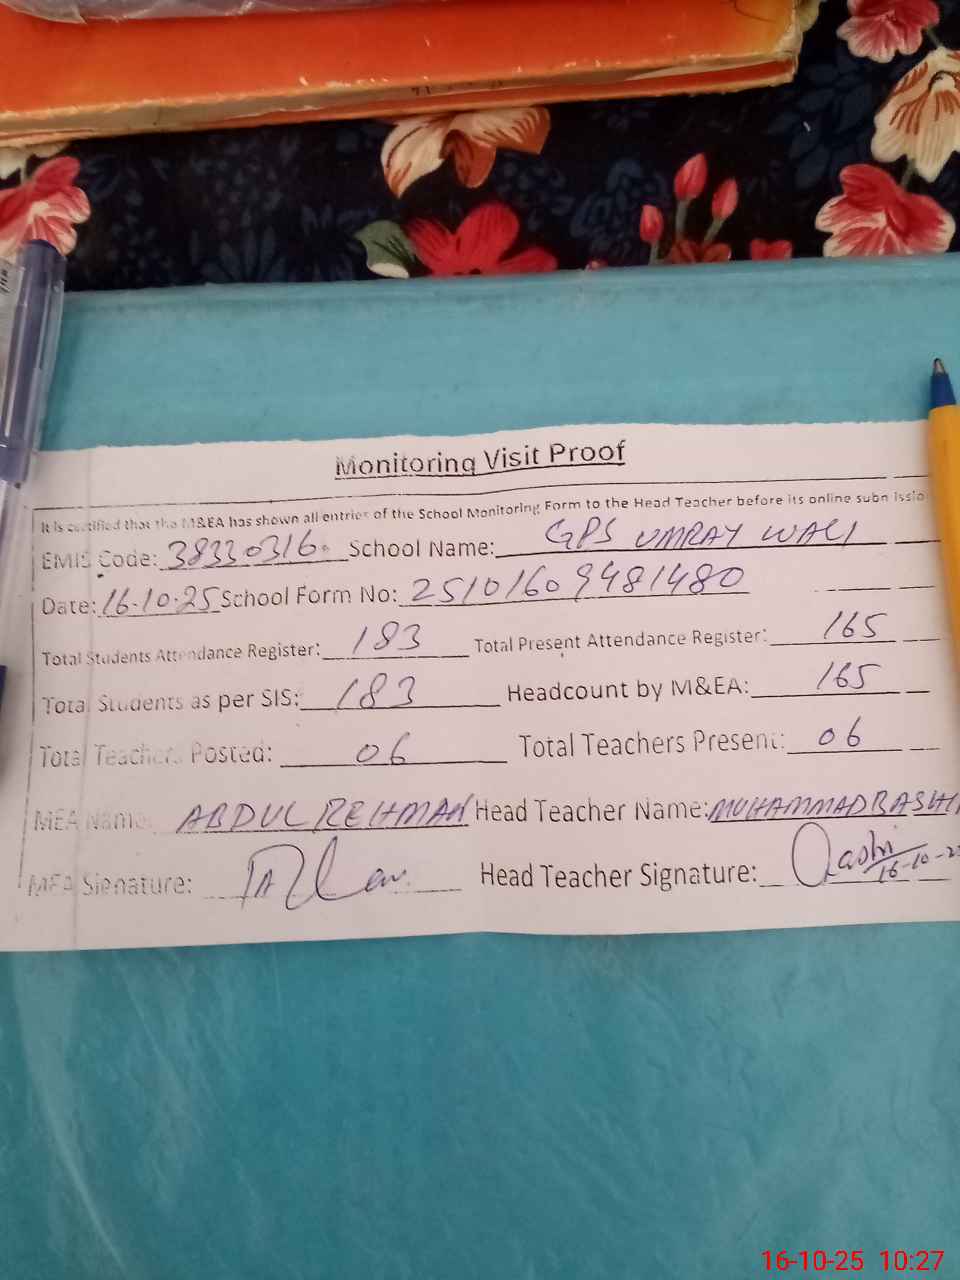 Monitoring Visit Proof
It is certified that the M&EA has shown all entries of the School Monitoring Form to the Head Teacher before its online subn issio
EMIS Code: 38330316. School Name: GPS UMRAY WALI
Date: 16.10.25 School Form No: 25101609481480
Total Students Attendance Register: 183 Total Present Attendance Register: 165
Total Students as per SIS: 183 Headcount by M&EA: 165
Total Teachers Posted: 06 Total Teachers Present: 06
MEA Name: ABDUL REHMAN Head Teacher Name: MUHAMMAD BASHI
MEA Signature: Head Teacher Signature: 16-10-2
16-10-25 10:27